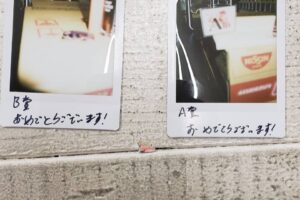 B賞
おめでとうございます!
A賞
おめでとうございます!
NISSIN